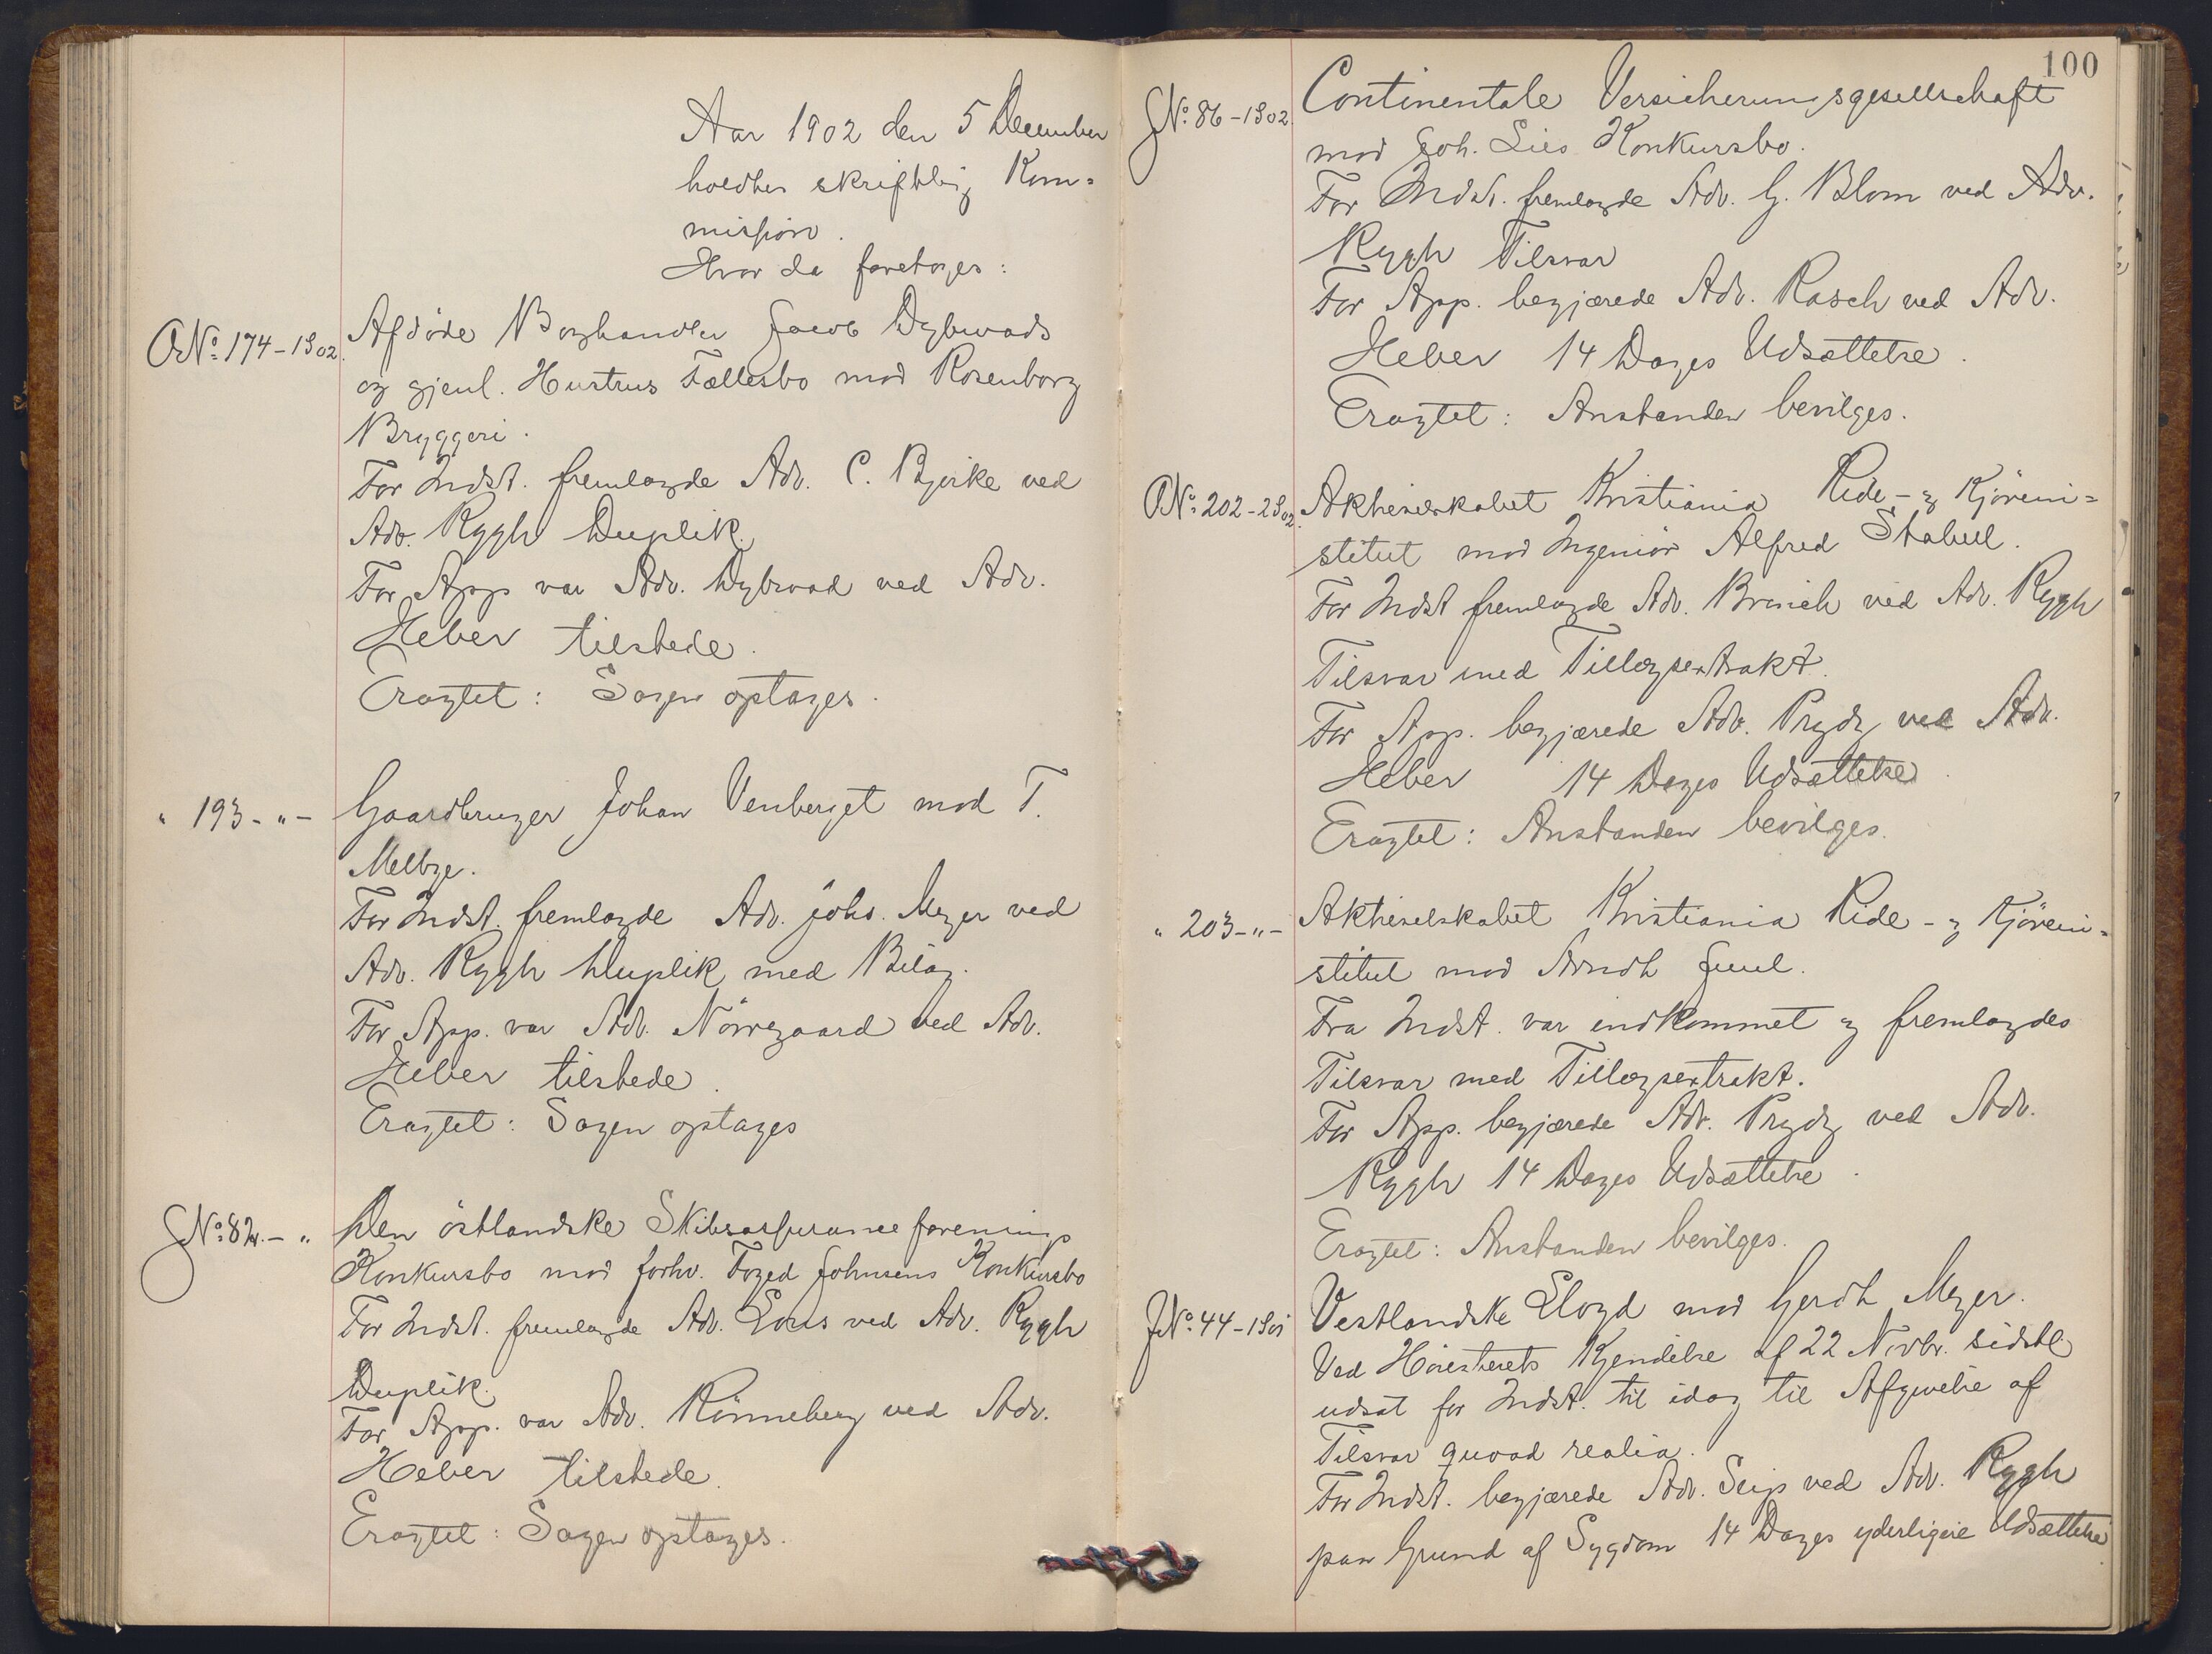 Aar 1902 den 5 December
holdtes skriftlig Kom=
mission.
Hvor da foretoges:
O№ 174-1902. Afdöde Boghandler Jacob Dybwads
og gjenl. Hustrus Fællesbo mod Rosenborg
Bryggeri.
For Indst. fremlagde Adv. C. Bjerke ved
Adv. Rygh Duplik.
For App var Adv. Dybwad ved Adv.
Heber tilstede.
Eragtet: Sagen optages.
" 193-"- Gaardbruger Johan Venberget mod T.
Melbye.
For Indst. fremlagde Adv. Johs. Meyer ved
Adv. Rygh Duplik med Bilag.
For App. var Adv. Nörregaard ved Adv.
Heber tilstede.
Eragtet: Sagen optages
S№ 82.-" Den östlandske Skibsassuranceforenings
Konkursbo mod forhv. Foged Johnsens Konkursbo
For Indst. fremlagde Adv. Lous ved Adv. Rygh
Duplik.
For App. var Adv. Rönneberg ved Adv.
Heber tilstede.
Eragtet: Sagen optages.
100
S№ 86-1902. Continentale Versicherungsgesellschaft
mod Joh. Lies Konkursbo.
For Indst. fremlagde Adv. G. Blom ved Adv.
Rygh Tilsvar
For App. begjærede Adv. Rasch ved Adv.
Heber 14 Dages Udsættelse.
Eragtet: Anstanden bevilges.
O№ 202-1902. Aktieselskabet Kristiania Ride- & Kjöreni=
stitut mod Ingeniör Alfred Stabell.
For Indst fremlagde Adv. Brinch ved Adv. Rygh
Tilsvar med Tillægsextrakt.
For App. begjærede Adv. Prydz ved Adv.
Heber 14 Dages Udsættelse.
Eragtet: Anstanden bevilges.
" 203-"- Aktieselskabet Kristiania Ride- & Kjöreni=
stitut mod Arndt Juul.
Fra Indst. var indkommet & fremlagdes
Tilsvar med Tillægsextrakt.
For App. begjærede Adv. Prydz ved Adv.
Rygh 14 Dages Udsættelse.
Eragtet: Anstanden bevilges.
J№ 44-1901 Vestlandske Lloyd mod Gerdt Meyer.
Ved Höiesterets Kjendelse af 22 Novbr. sidstl
udsat for Indst. til idag til Afgivelse af
Tilsvar quoad realia.
For Indst. begjærede Adv. Seip ved Adv. Rygh
paa Grund af Sygdom 14 Dages yderligere Udsættelse